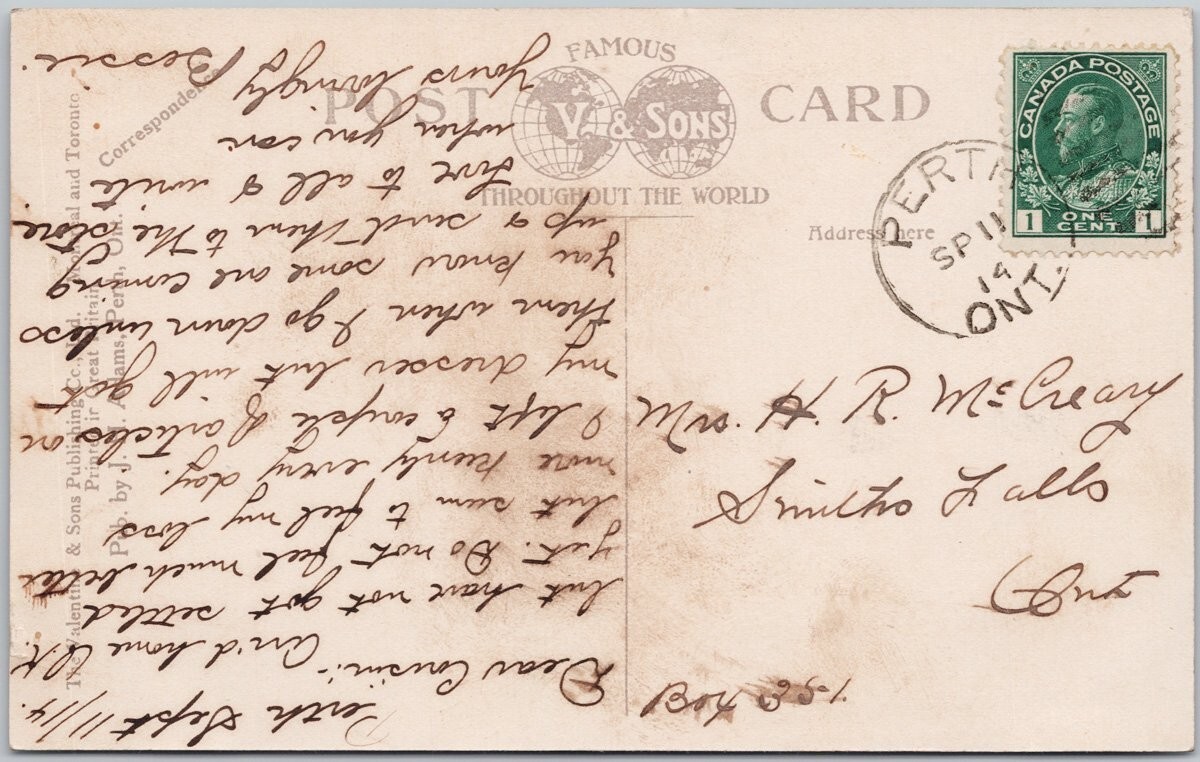 FAMOUS
POST CARD
V. & SONS
THROUGHOUT THE WORLD
Address here
CANADA POSTAGE
1 ONE CENT 1
PERTH
SP 11
14
ONT.
Mrs. H. R. McCreary
Smiths Falls
Ont
Box
Perth Sept 11/14.
Dear Cousin:- Arr'd home O.K.
but have not got settled
yet. Do not feel much better
but seem to feel my loss
more keenly every day.
I left a couple of articles on
my dresser but will get
them when I go down unless
you know some one coming
up & send them to the store.
Love to all & write
when you can
Yours lovingly Bessie.
Correspondence
The Valentine & Sons Publishing Co., Ltd. Montreal and Toronto
Printed in Great Britain
Pub. by J. Adams, Perth, Ont.